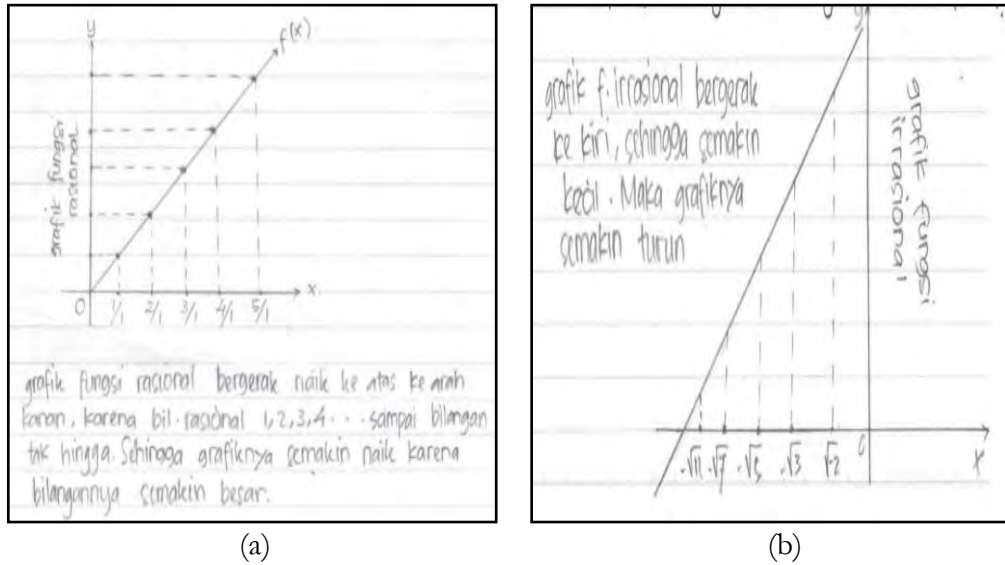 y
f(x)
grafik fungsi
rasional
0 1/1 2/1 3/1 4/1 5/1 x
grafik fungsi rasional bergerak naik ke atas ke arah
kanan, karena bil. rasional 1,2,3,4 ... sampai bilangan
tak hingga. Sehingga grafiknya semakin naik karena
bilangannya semakin besar.
(a)
y
grafik f. irrasional bergerak
ke kiri, sehingga semakin
kecil. Maka grafiknya
semakin turun
grafik fungsi
irrasional
-√11 -√7 -√5 -√3 √-2 0 x
(b)